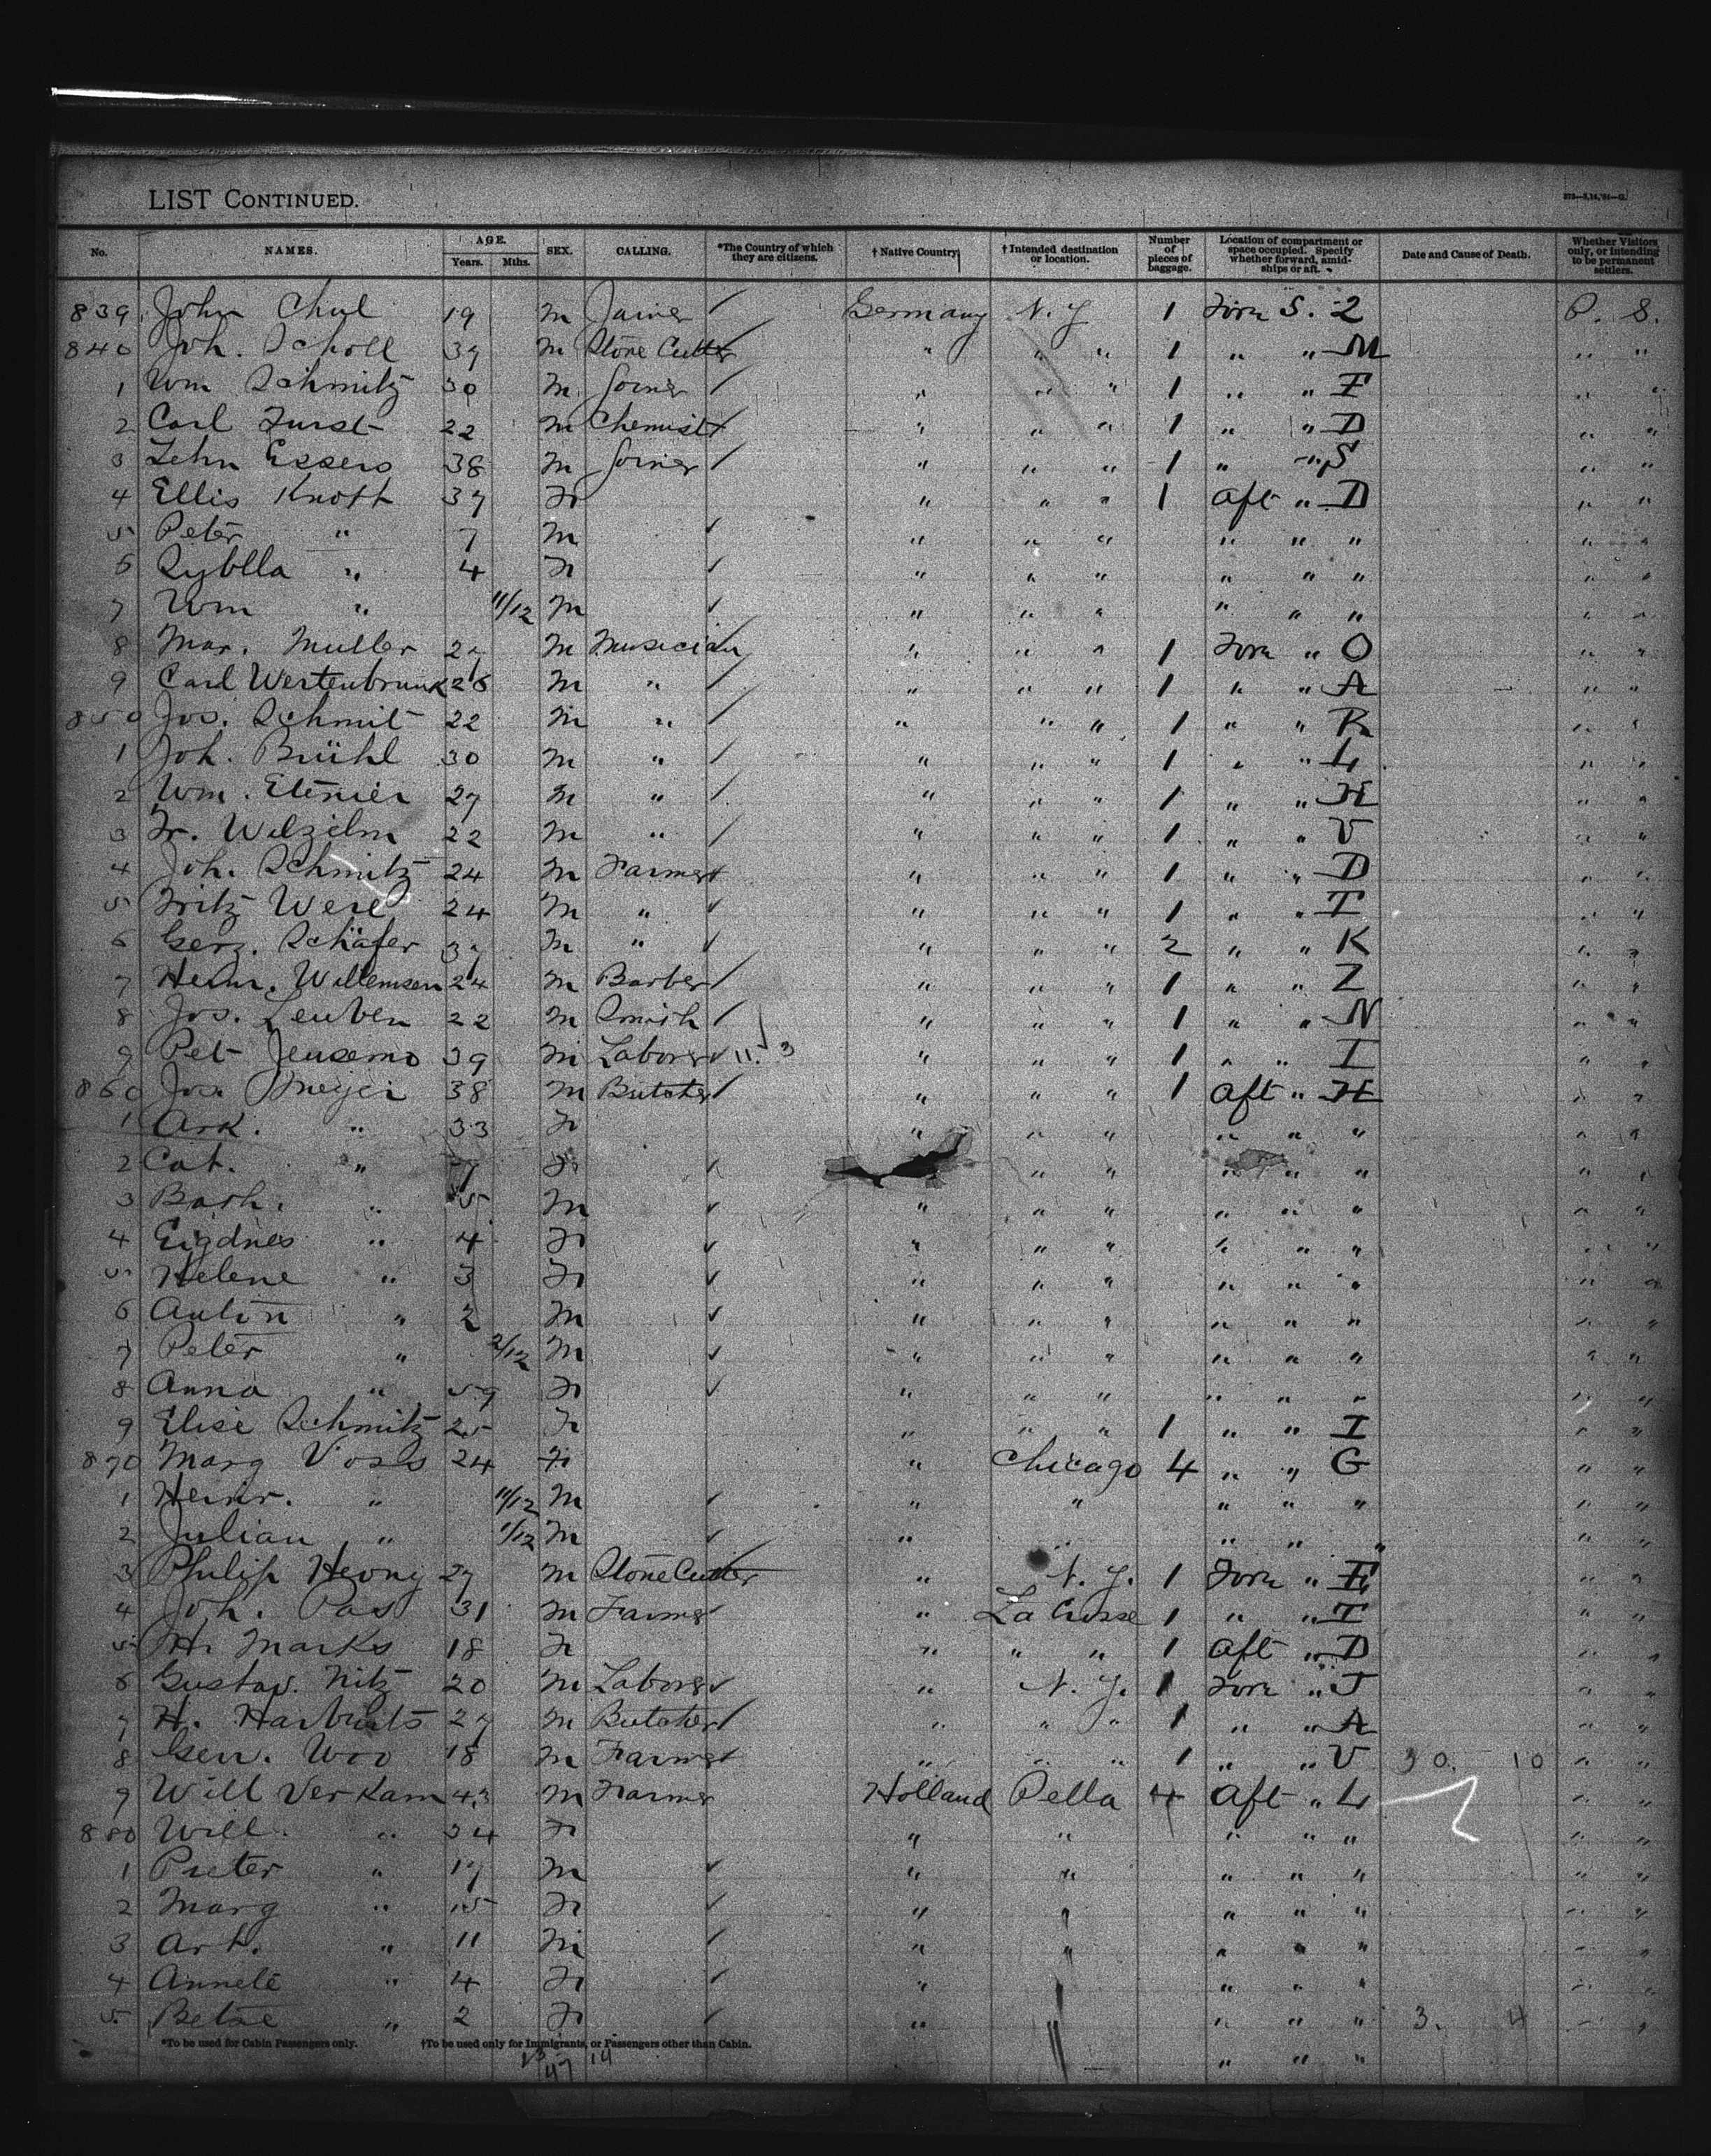 LIST CONTINUED.
No. NAMES. AGE. Years. Mths. SEX. CALLING. *The Country of which they are citizens. † Native Country † Intended destination or location. Number of pieces of baggage. Location of compartment or space occupied. Specify whether forward, amidships or aft. Date and Cause of Death. Whether Visitors only, or intending to be permanent settlers.
839 John Chul 19 M Joiner Germany N. Y 1 Forw S. 2 P. S.
840 Joh. Scholl 39 M Stone Cutter " " " 1 " " M " "
1 Wm Schmitz 30 M Joiner " " " 1 " " F " "
2 Carl Furst 22 M Chemist " " " 1 " " D " "
3 Lehn Essers 38 M Joiner " " " 1 " " S " "
4 Ellis Knott 37 F " " " 1 Aft " D " "
5 Peter " 7 M " " " " " " " "
6 Sybilla " 4 F " " " " " " " "
7 Wm " 11/12 M " " " " " " " "
8 Mar. Muller 27 M Musician " " " 1 Forw " O " "
9 Carl Wertenbruuk 26 M " " " " 1 " " A " "
850 Jos. Schmit 22 M " " " " 1 " " R " "
1 Joh. Brühl 30 M " " " " 1 " " L " "
2 Wm. 27 M " " " " 1 " " H " "
3 Fr. 22 M " " " " 1 " " V " "
4 Joh. Schmitz 24 M Farmer " " " 1 " " D " "
5 Fritz Wesel 24 M " " " " 1 " " T " "
6 Gerz. Schäfer 37 M " " " " 2 " " K " "
7 Heinr. Willemsen 24 M Barber " " " 1 " " Z " "
8 Jos. Leuven 22 M Smith " " " 1 " " N " "
9 Pet 39 M Laborer 11. 3 " " " 1 " " I " "
860 Jos Meyer 38 M Butcher " " " 1 Aft " H " "
1 Ark. " 33 F " " " " " " " "
2 Cat. " 7 F " " " " " " "
3 Bath. " 5 M " " " " " " " "
4 Eigdnes " 4 F " " " " " " " "
5 Helene " 3 F " " " " " " " "
6 Anton " 2 M " " " " " " " "
7 Peter " 2/12 M " " " " " " " "
8 Anna " 59 F " " " " " " " "
9 Elise Schmitz 25 F " " " 1 " " I " "
870 Marg Voss 24 F " Chicago 4 " " G " "
1 Heinr. " 11/12 M " " " " " " "
2 Julian " 1/12 M " " " " " " "
3 Philip Heong 27 M Stone Cutter " N. Y. 1 Forw " E " "
4 Joh. Pas 31 M Farmer " La Crosse 1 " " T " "
5 Hr Marks 18 F " " " 1 Aft " D " "
6 Gustav. Nitz 20 M Laborer " N. Y. 1 Forw " J " "
7 H. 27 M Butcher " " " 1 " " A " "
8 Gerr. Woo 18 M Farmer " " " 1 " " V 30. 10 " "
9 Will Verkam 43 M Farmer Holland Pella 4 Aft " L " "
880 Will. " 34 F " " " " " " "
1 Pieter " 17 M " " " " " " "
2 Marg " 15 F " " " " " " "
3 Art. " 11 M " " " " " " "
4 Annele " 4 F " " " " " " "
5 Betse " 2 F " " " " 3. 4 " "
*To be used for Cabin Passengers only. †To be used only for Immigrants, or Passengers other than Cabin.
" " "
47